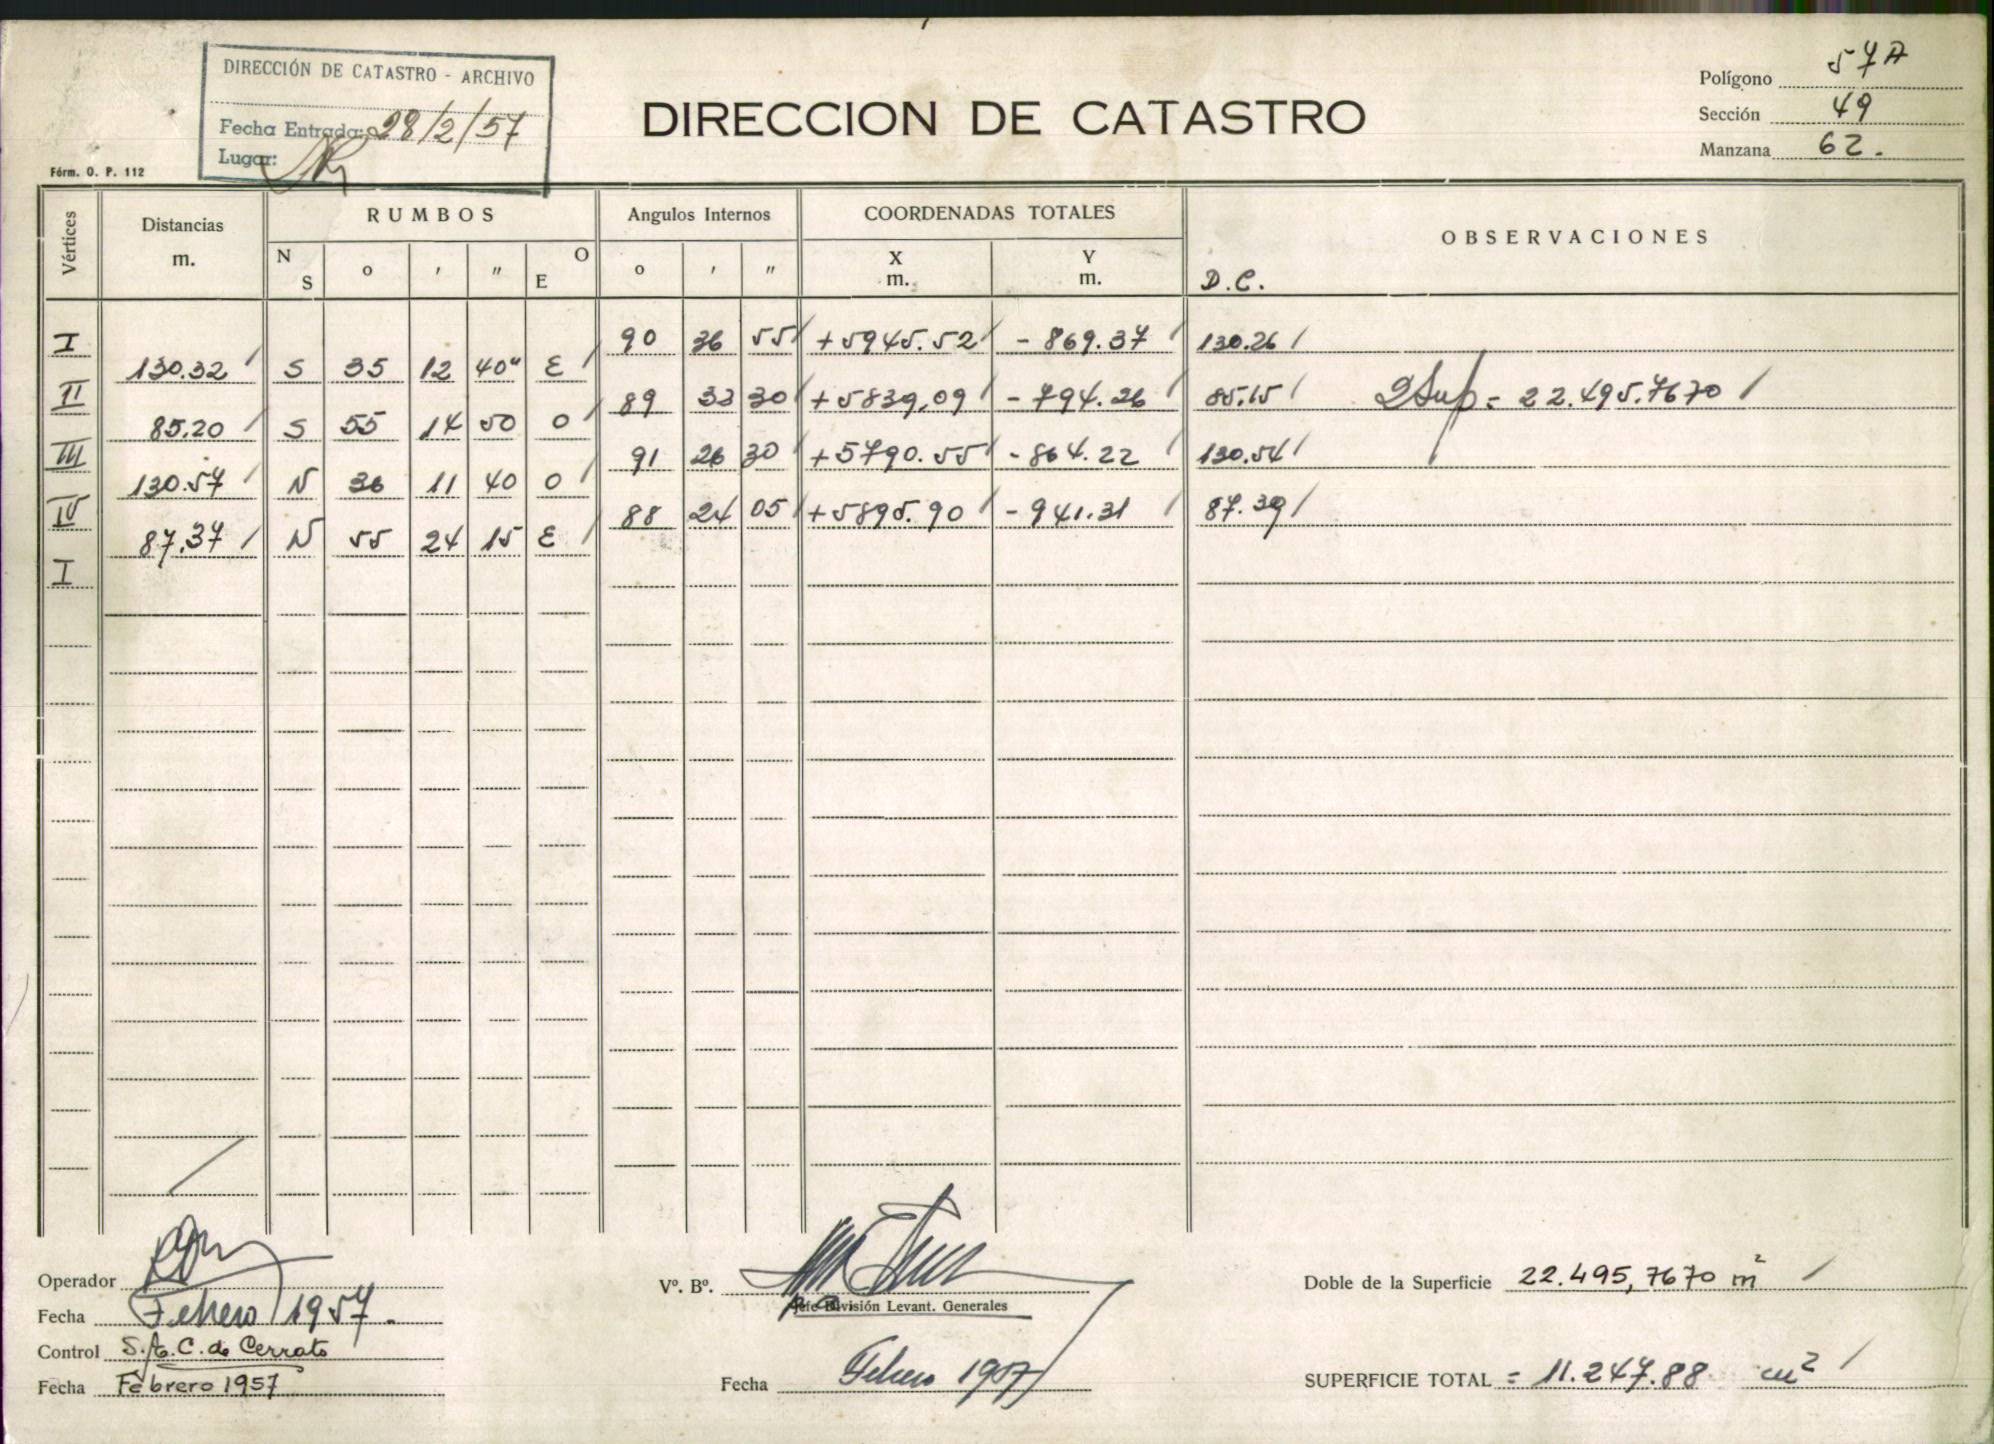 DIRECCIÓN DE CATASTRO - ARCHIVO
Fecha Entrada: 28/2/57
Lugar:
Fórm. O. P. 112
DIRECCION DE CATASTRO
Polígono 57A
Sección 49
Manzana 62.
Vértices Distancias m. RUMBOS Angulos Internos COORDENADAS TOTALES OBSERVACIONES
N S o ' " O E o ' " X m. Y m. D.C.
I 90 36 55 +5945.52 - 869.37 130.26
130.32 S 35 12 40" E
II 89 33 30 +5839,09 - 794.26 85.15 2Sup = 22.495.7670
85.20 S 55 14 50 O
III 91 26 30 +5790.55 - 864.22 130.54
130.57 N 36 11 40 O
IV 88 24 05 +5895.90 - 941.31 87.39
87.37 N 55 24 15 E
I
Operador
Fecha Febrero 1957.
Control S.A.C. de Cerrato
Fecha Febrero 1957
Vº. Bº.
Jefe División Levant. Generales
Fecha Febrero 1957
Doble de la Superficie 22.495,7670 m²
SUPERFICIE TOTAL = 11.247.88 m²